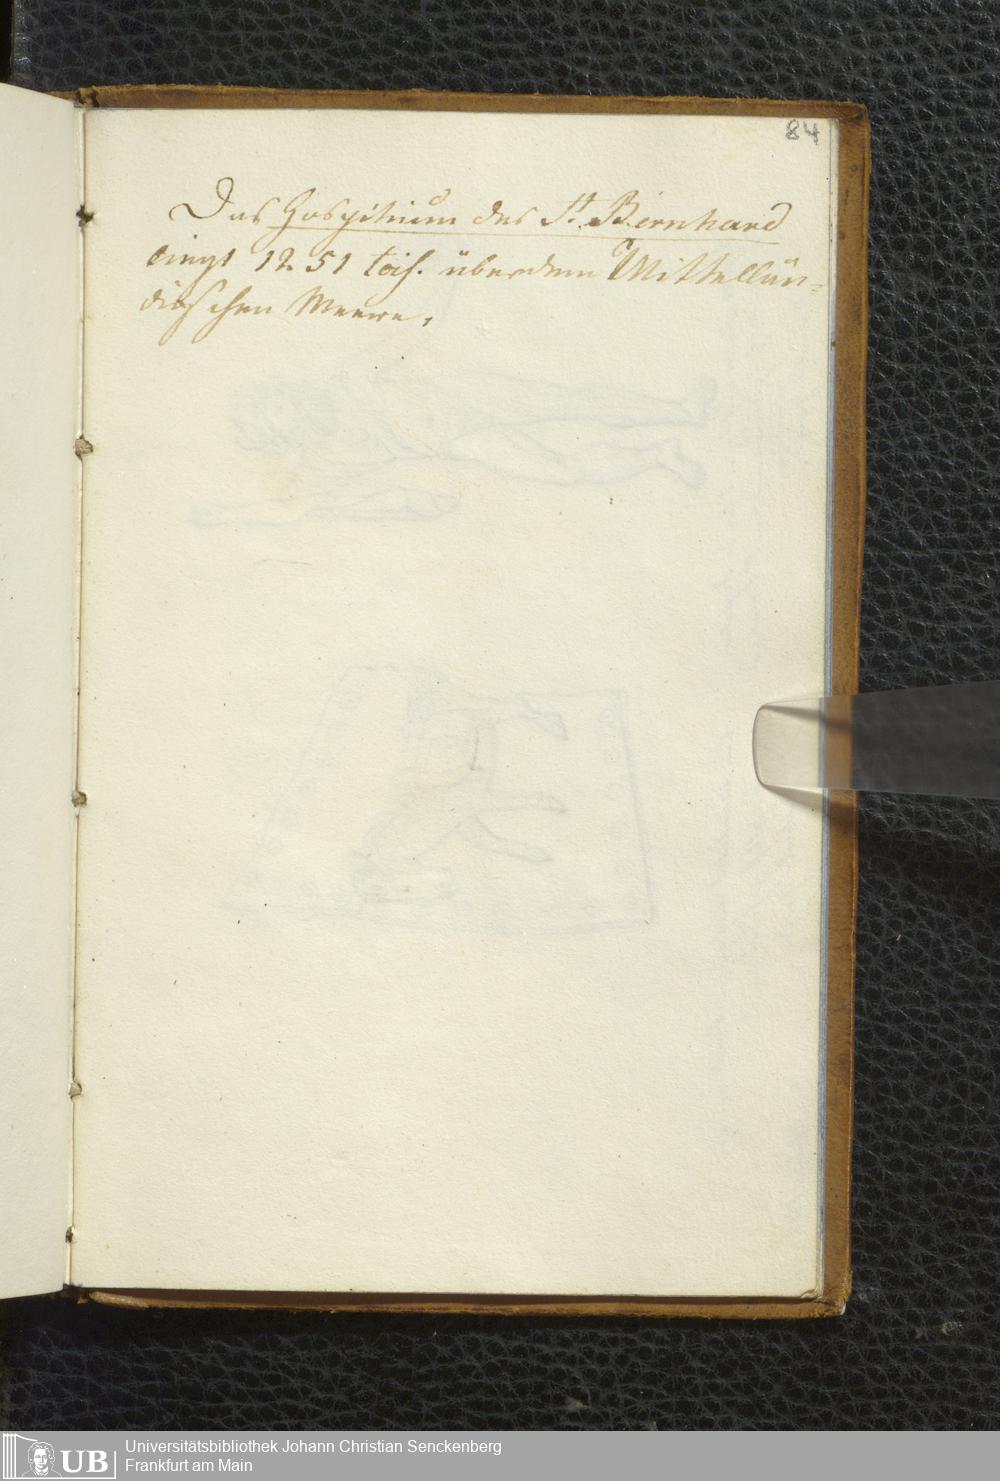 84
Das Hospitium des St. Bernhard
liegt 1251 tois. über dem Mittellän=
dischen Meere.
UB
Universitätsbibliothek Johann Christian Senckenberg
Frankfurt am Main